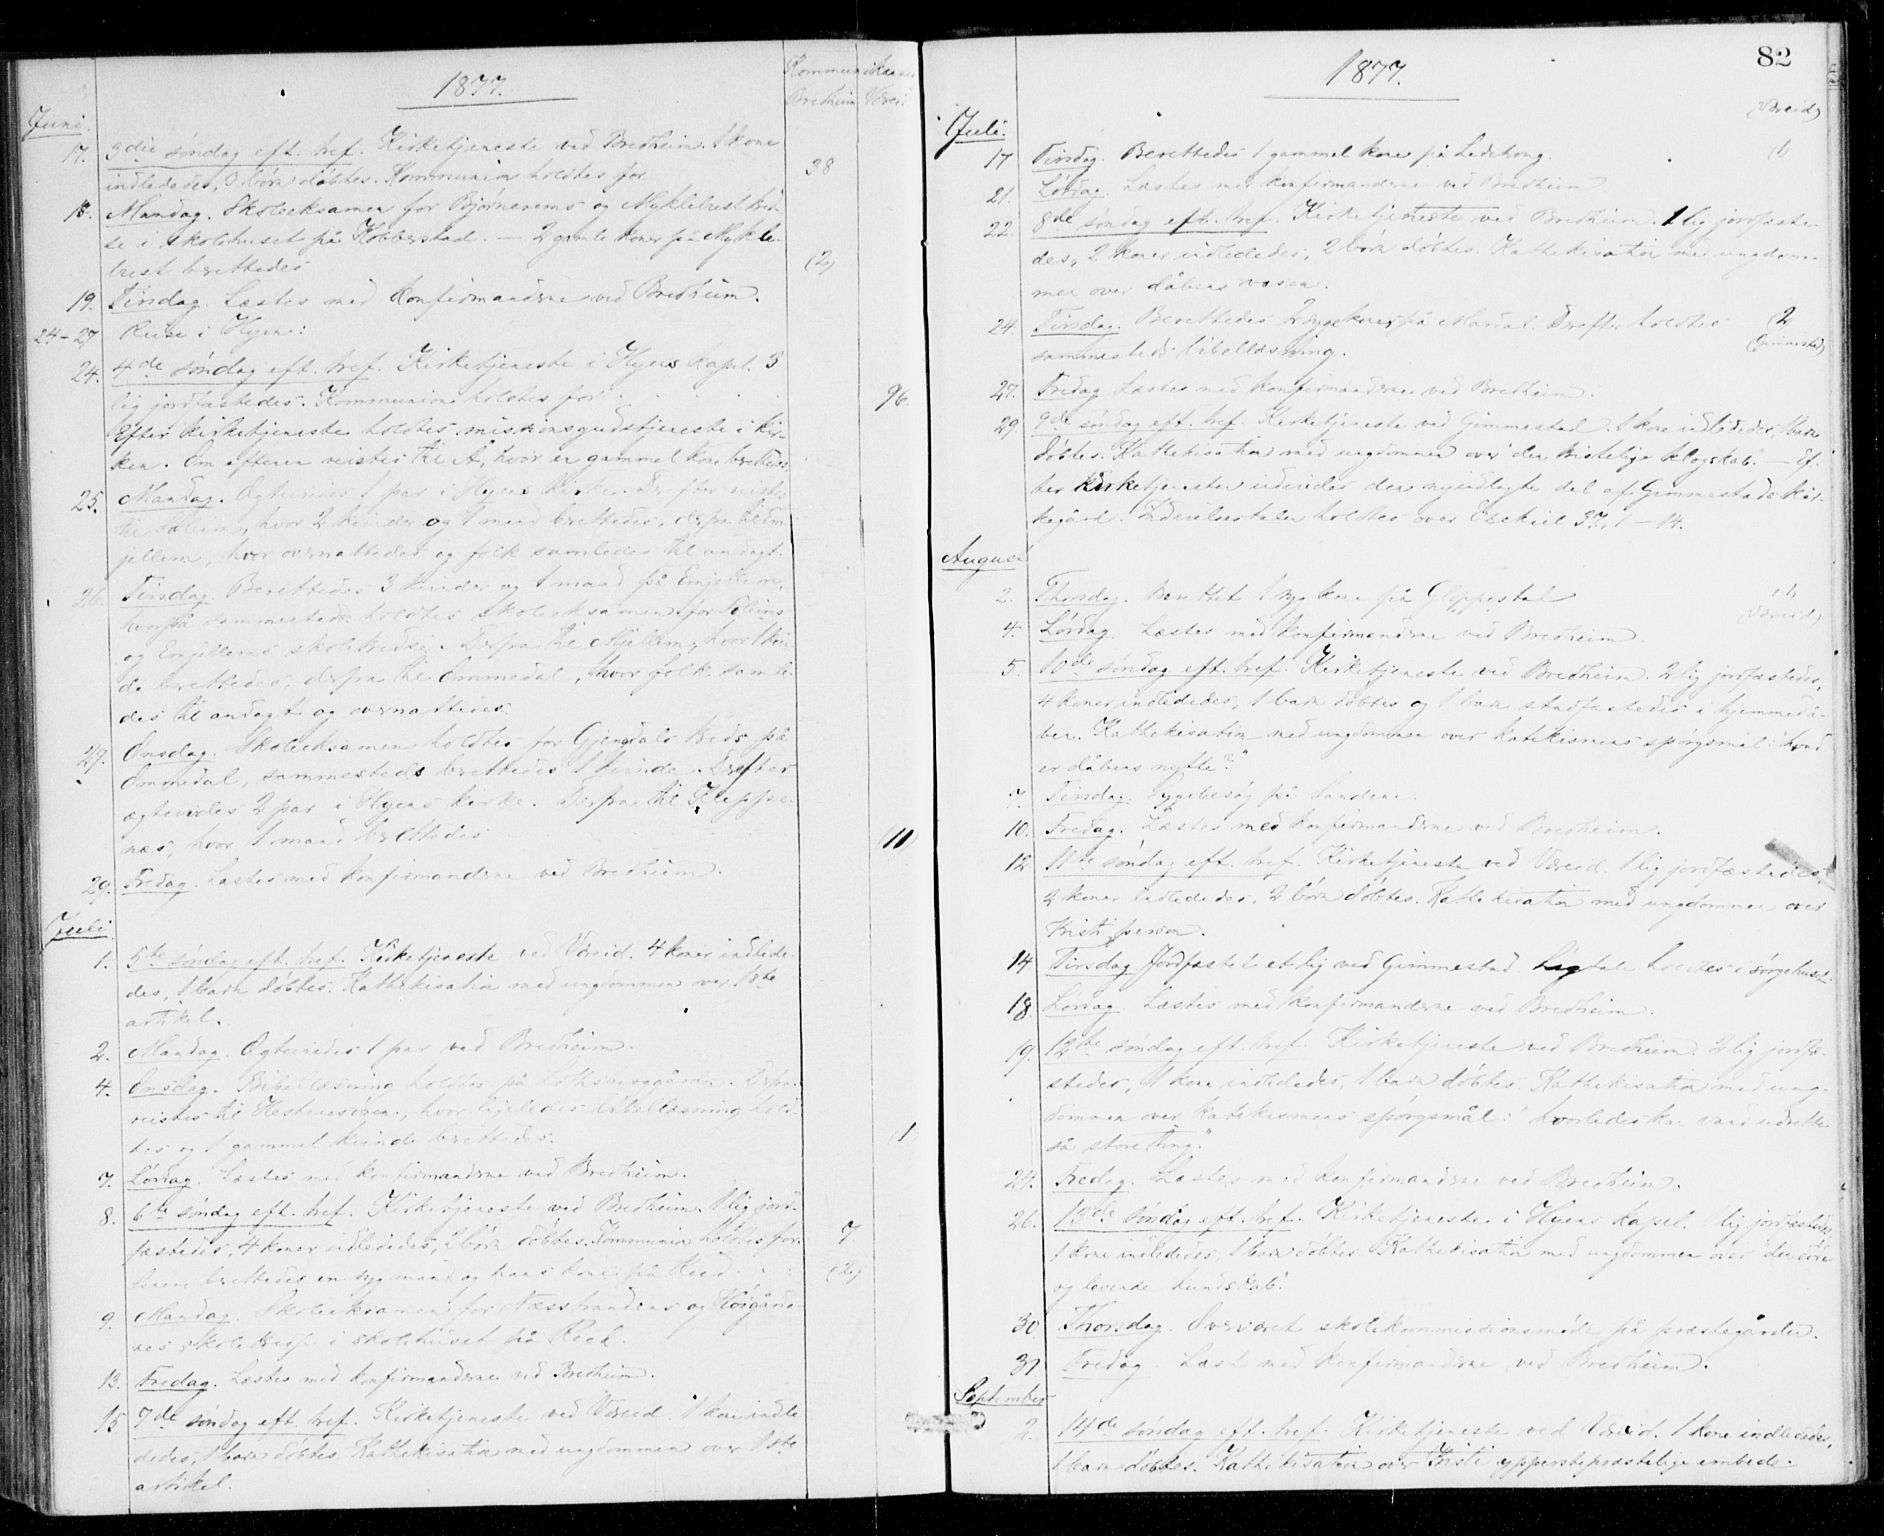 1877.
Kommunikanter
Bredheim Vereid
Juni.
17. 3die søndag eft. tref. Kirketjeneste ved Bredheim. 1 kone
indlededes, 3 børn døbtes. Kommunion holdtes for 38
18. Mandag. Skoleeksamen for Bjørnerems og Myklebust kred-
se i skolehuset på Kobberstad. — 2 gamle koner på Mykle-
bust berettedes (2)
19. Tirsdag. Læstes med konfirmanderne ved Bredheim.
24-27 Reise i Hyen:
24. 4de søndag eft. tref. Kirketjeneste i Hyens kapel. 3
lig jordfæstedes. Kommunion holdtes for 96.
Efter kirketjeneste holdtes missionsgudstjeneste i kir-
ken. Om eftenen reistes til Å, hvor en gammel kone berettedes
25. Mandag. Ægteviedes 1 par i Hyens kirke. Derefter reistes
til Soleim, hvor 2 kvinder og 1 mand berettedes, derfra til Em-
jellem, hvor overnattedes og folk samledes til andagt.
26. Tirsdag. Berettedes 3 kvinder og 1 mand på Emjellem,
hvorpå sammesteds holdtes skoleeksamen for Soleims
og Emjellems skolekredse. Derfra til Mjellem, hvor 1 kvin-
de berettedes, derfra til Ommedal, hvor folk samle-
des til andagt og overnattedes.
27. Onsdag. Skoleeksamen holdtes for Gjendals kreds på
Ommedal, sammesteds berettedes 1 kvinde. Derefter
ægteviedes 2 par i Hyens kirke. Derfra til Kleppe-
næs, hvor 1 mand berettedes (11)
29. Fredag. Læstes med konfirmanderne ved Bredheim.
Juli.
1. 5te søndag eft. tref. Kirketjeneste ved Vereid. 4 koner indlede-
des, 1 barn døbtes. Kathekisation med ungdommen over 1ste
artikel.
2. Mandag. Ægteviedes 1 par ved Bredheim.
4. Onsdag. Bibellæsning holdtes på Lothsberggården. Derfra
reistes til Hestenesøren, hvor ligeledes bibellæsning hold-
tes og 1 gammel kvinde berettedes. (1)
7. Lørdag. Læstes med konfirmanderne ved Bredheim.
8. 6te søndag eft. tref. Kirketjeneste ved Bredheim. 1 lig jord-
fæstedes, 4 koner indlededes, 2 børn døbtes. Kommunion holdtes for 7
Senere berettedes en syg mand og hans kone på Reed (2)
9. Mandag. Skoleeksamen for Næsstrandens og Høigårde-
nes skolekredse i skolehuset på Reed.
13. Fredag. Læstes med konfirmanderne ved Bredheim.
15 7de søndag eft. tref. Kirketjeneste ved Vereid. 1 kone indle
dedes, 1 barn døbtes. Kathekisation med ungdommen over 1ste
artikel.
82
1877.
Vereid
Juli.
17 Tirsdag. Berettedes 1 gammel kone på Ledehong. (1)
21. Lørdag. Læstes med konfirmanderne ved Bredheim.
22. 8de søndag eft. tref. Kirketjeneste ved Bredheim. 1 lig jordfæste-
des, 2 koner indlededes, 2 børn døbtes. Kathekisation med ungdom-
men over dåbens væsen.
24. Tirsdag. Berettedes 2 syge koner på Mardal. Derefter holdtes (2
sammesteds bibellæsning. Gimmestad)
27. Fredag Læstes med konfirmanderne ved Bredheim.
29. 9de søndag eft. tref. Kirketjeneste ved Gimmestad. 1 kone indlededes, 1 barn
døbtes. Kathekisation med ungdommen over "den kristelige klogskab". — Ef-
ter kirketjenesten indviedes den nyindlagte del af Gimmestads kir-
kegård. Indvielsestalen holdtes over Ezekiel 37, 1-14.
August
2. Thorsdag. Berettet 1 syg kone på Gloppestad (1)
4. Lørdag. Læstes med konfirmanderne ved Bredheim. Vereid)
5. 10de søndag eft. tref. Kirketjeneste ved Bredheim. 2 lig jordfæstedes,
4 koner indlededes, 1 barn døbtes og 1 barn stadfæstedes i hjemmedå-
ben. Kathekisation med ungdommen over katekismens spørgsmål: "hvad
er dåbens nytte?"
7. Tirsdag. Sygebesøg på Sandene.
10. Fredag. Læstes med konfirmanderne ved Bredheim.
12. 11te søndag eft. tref. Kirketjeneste ved Vereid. 1 lig jordfæstedes,
2 koner indlededes, 2 børn døbtes. Kathekisation med ungdommen over
Kristi person.
14 Tirsdag Jordfæstet et lig ved Gimmestad. Ligtale holdtes i sørgehuset.
18. Lørdag. Læstes med konfirmanderne ved Bredheim.
19. 12te søndag eft. tref. Kirketjeneste ved Bredheim. 2 lig jordfæ-
stedes, 1 kone indlededes, 1 barn døbtes. Kathekisation med ung-
dommen over katekismens spørgsmål: "hvorledes kan vand udrette
så store ting."
24. Fredag. Læstes med konfirmanderne ved Bredheim.
26. 13de søndag eft. tref. Kirketjeneste i Hyens kapel. 1 lig jordfæstedes,
1 kone indlededes, 1 barn døbtes. Kathekisation med ungdommen over "den døde
og levende kundskab".
30 Thorsdag. Overværet skolekommissionsmøde på præstegården.
31 Fredag. Læst med konfirmanderne ved Bredheim.
September
2. 14de søndag eft. tref. Kirketjeneste ved Vereid. 1 kone indlededes,
1 barn døbtes. Kathekisation over Kristi ypperstepræstelige embede.